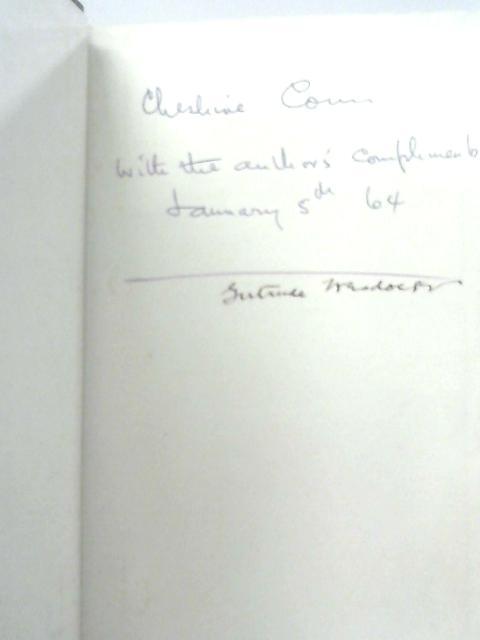 Cheshire
with the author's compliments
January 5th 64
Gertrude